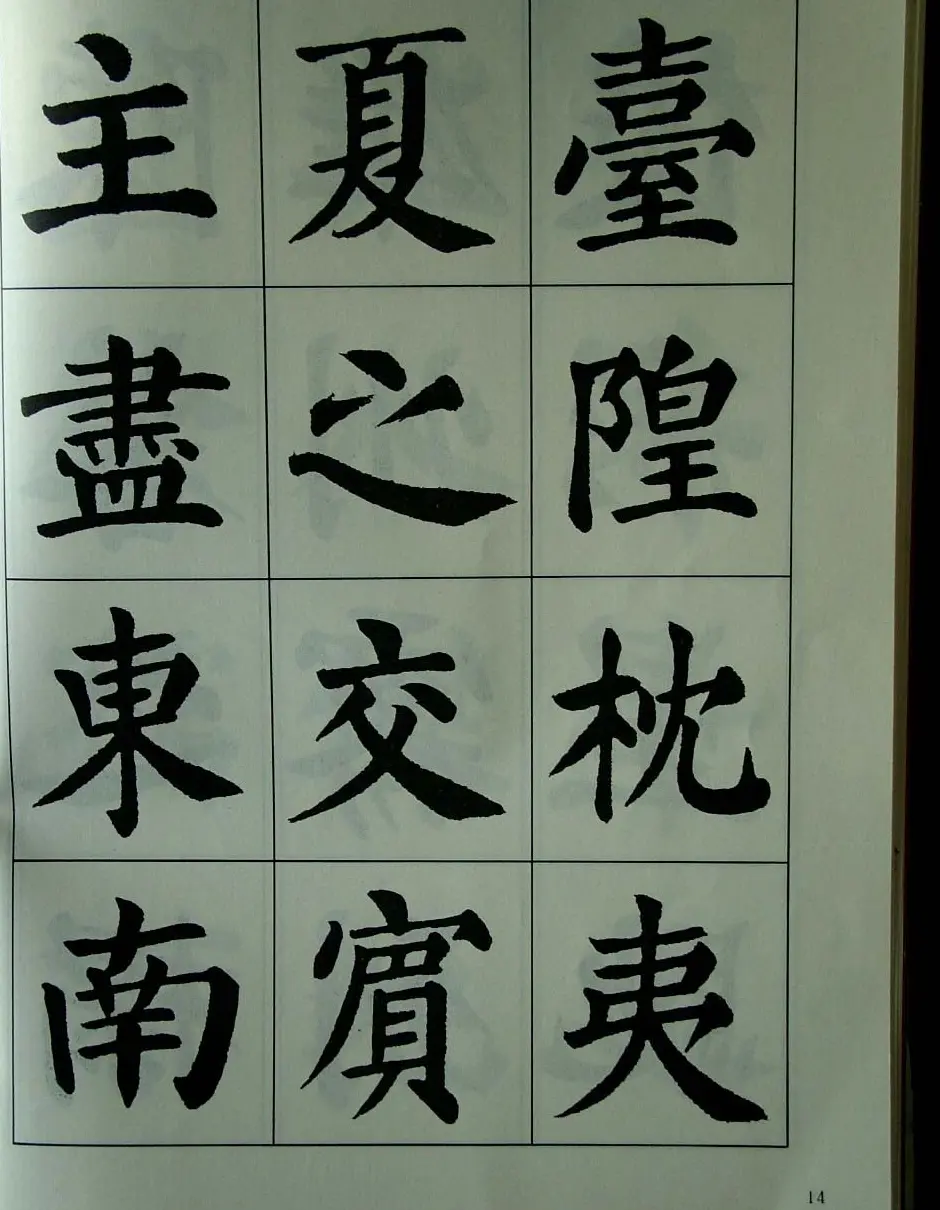 臺隍枕夷
夏之交賓
主盡東南
14